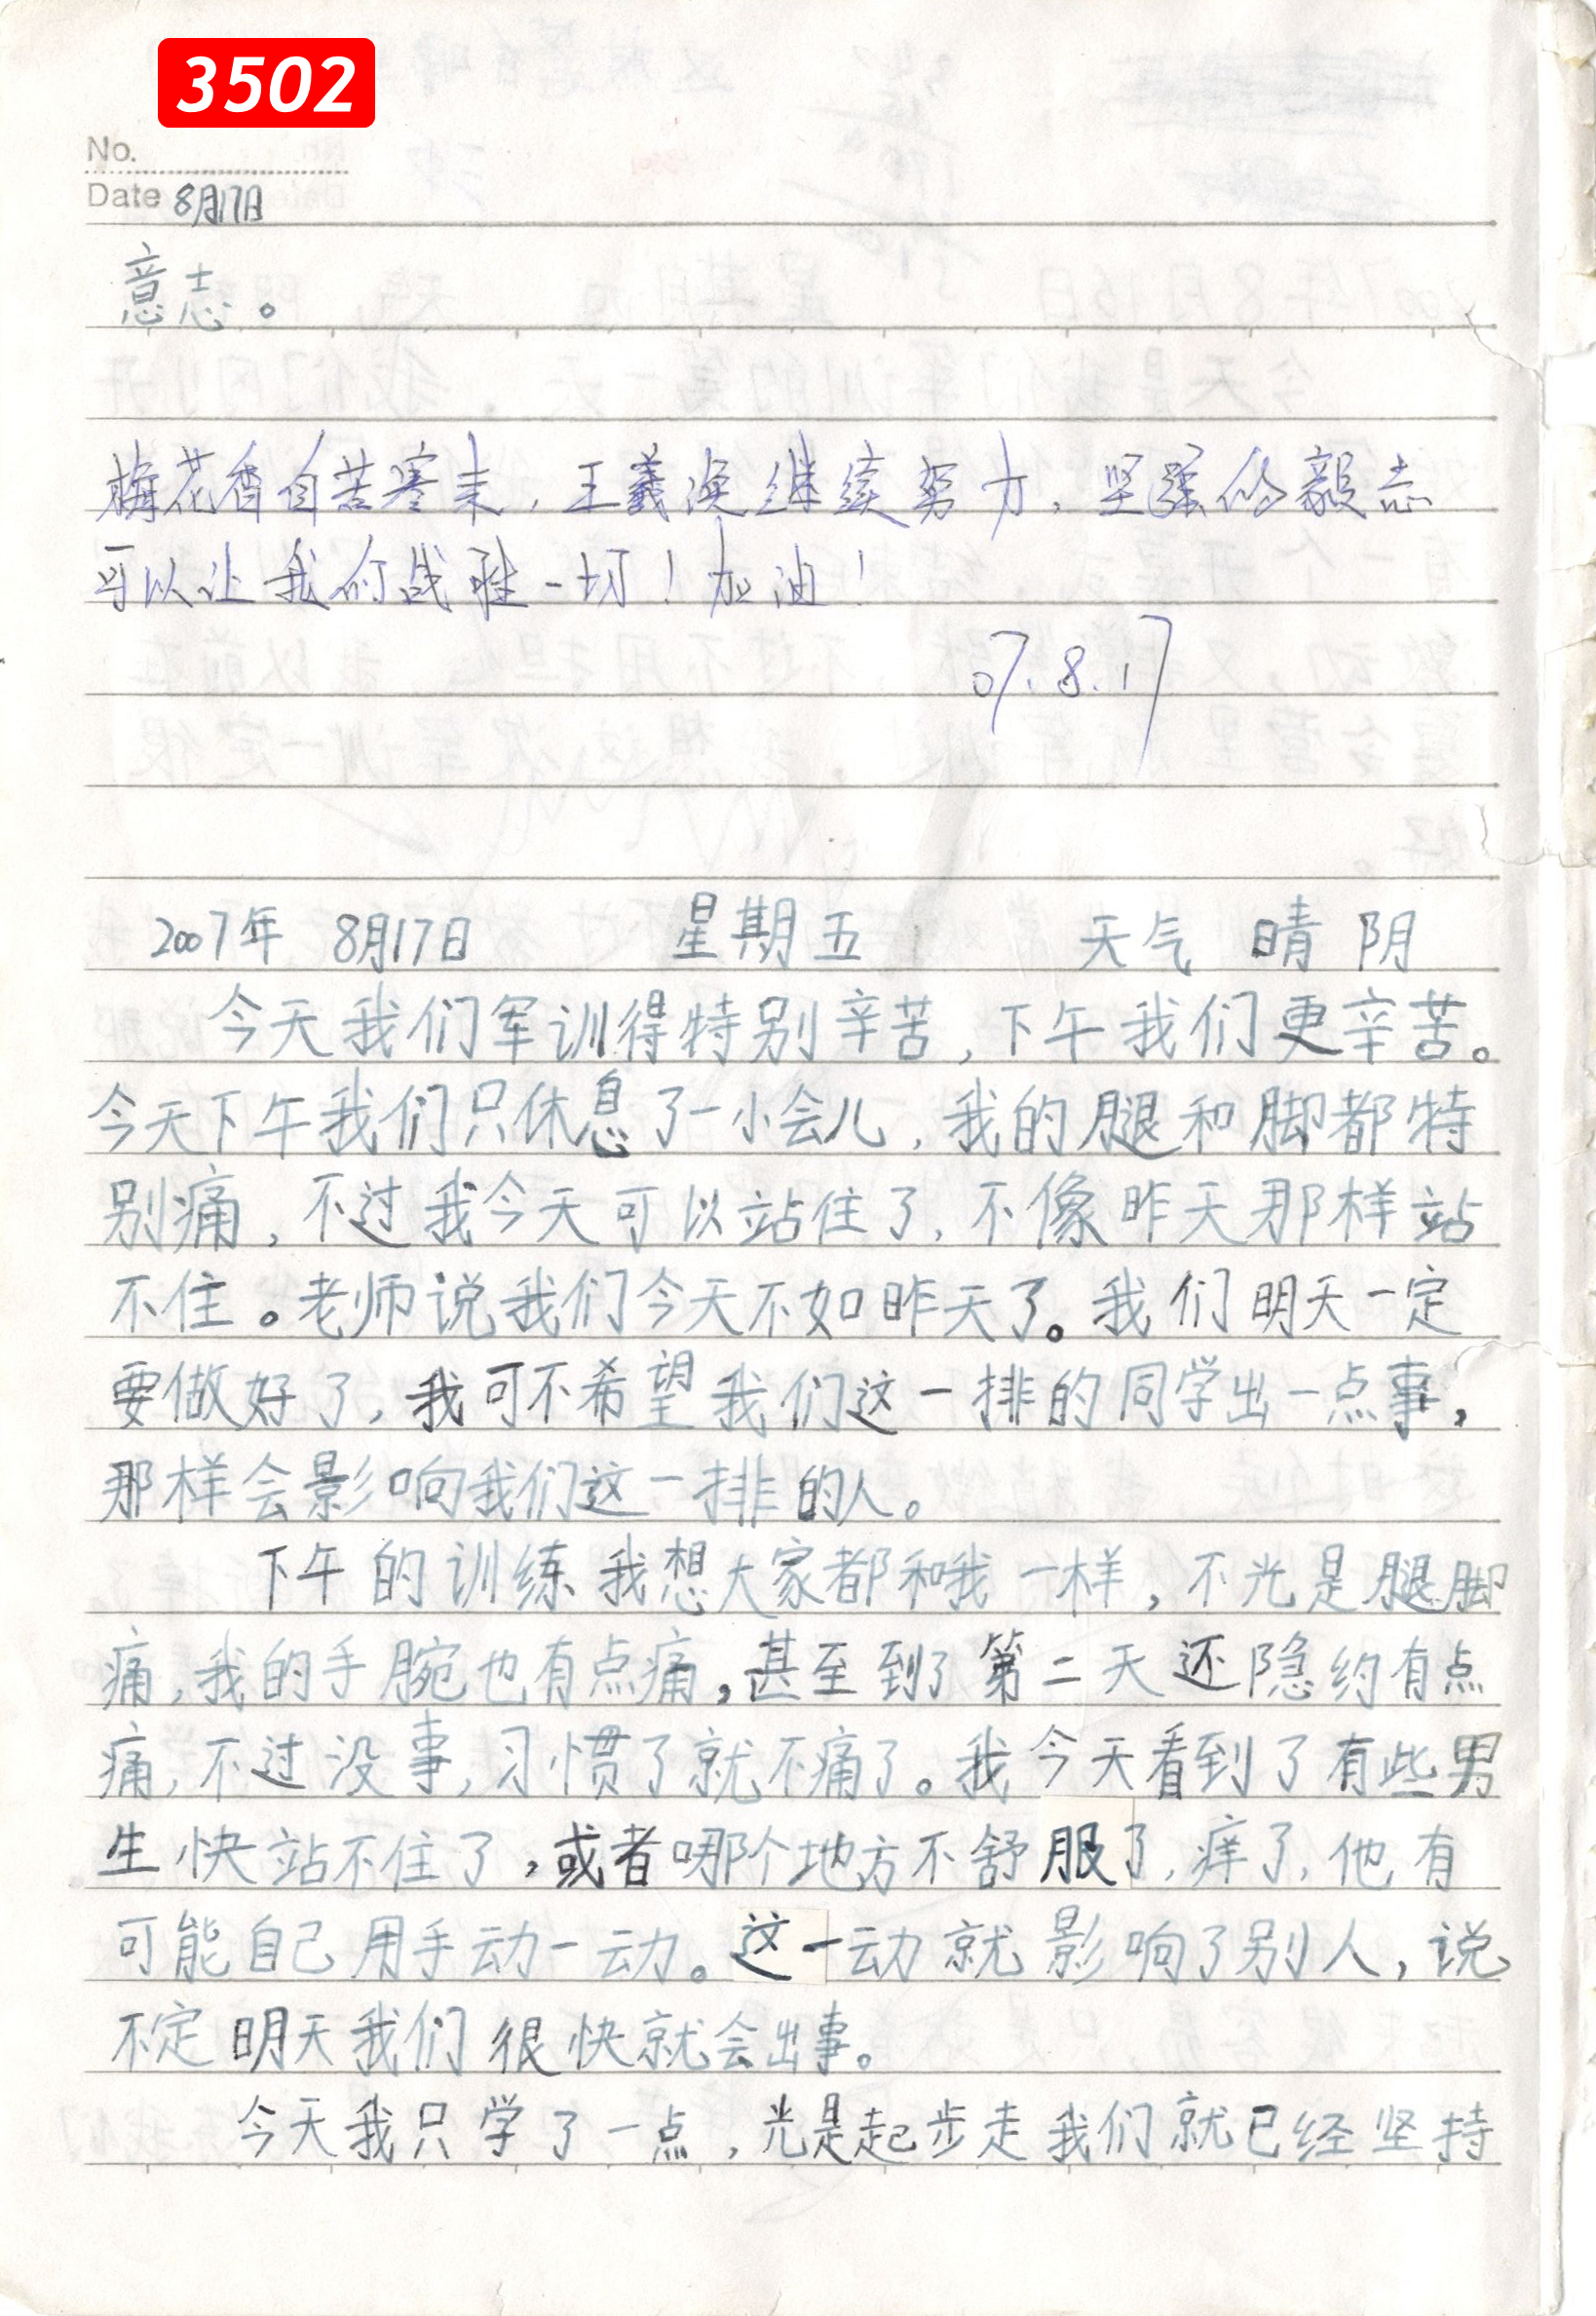 3502
No.
Date 8月17日
意志。
梅花香自苦寒来，王羲涣继续努力，坚强的毅志
可以让我们战胜一切！加油！
07.8.17
2007年 8月17日 星期五 天气 晴 阴
今天我们军训得特别辛苦，下午我们更辛苦。
今天下午我们只休息了一小会儿，我的腿和脚都特
别痛，不过我今天可以站住了，不像昨天那样站
不住。老师说我们今天不如昨天了。我们明天一定
要做好了，我可不希望我们这一排的同学出一点事，
那样会影响我们这一排的人。
下午的训练我想大家都和我一样，不光是腿脚
痛，我的手腕也有点痛，甚至到了第二天还隐约有点
痛，不过没事，习惯了就不痛了。我今天看到了有些男
生快站不住了，或者哪个地方不舒服了，痒了，他有
可能自己用手动一动。这一动就影响了别人，说
不定明天我们很快就会出事。
今天我只学了一点，光是起步走我们就已经坚持